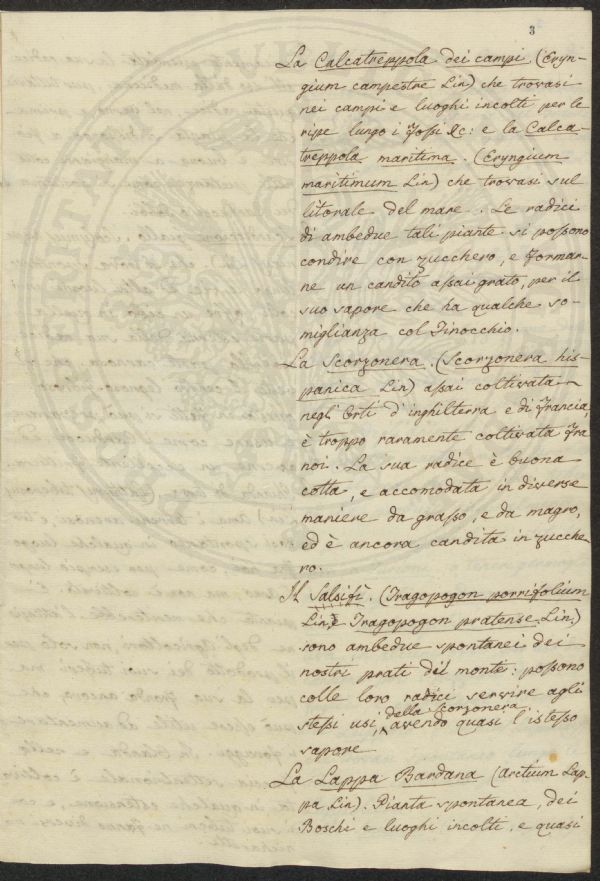 3
La Calcatreppola dei campi. (Eryn-
gium campestre Lin) che trovasi
nei campi e luoghi incolti per le
ripe lungo i fossi &c: e la Calca-
treppola maritima. (Eryngium
maritimum Lin) che trovasi sul
litorale del mare. Le radici
di ambedue tali piante si possono
condire con zucchero, e formar-
ne un candito assai grato, per il
suo sapore che ha qualche so-
miglianza col Finocchio.
La Scorzonera. (Scorzonera his-
panica Lin) assai coltivata
negli Orti d'inghilterra e di Francia,
è troppo raramente coltivata fra
noi. La sua radice è buona
cotta, e accomodata in diverse
maniere da grasso, e da magro,
ed è ancora candita in zucche-
ro.
Il Salsifì. (Tragopogon porrifolium
Lin, e Tragopogon pratense Lin)
sono ambedue spontanei dei
nostri prati del monte: possono
colle loro radici servire agli
stessi usi, della Scorzonera avendo quasi l'istesso
sapore
La Lappa Bardana (arctium Lap-
pa Lin). Pianta spontanea, dei
Boschi e luoghi incolti, e quasi